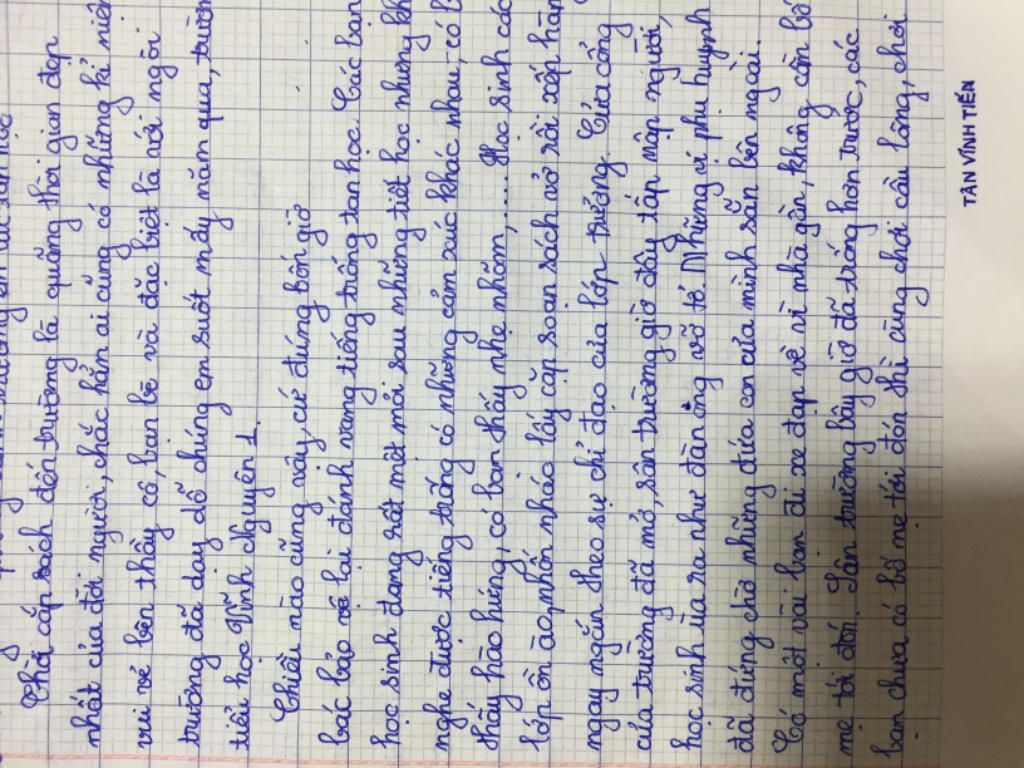 Thời cắp sách đến trường là quãng thời gian đẹp
nhất của đời người, chắc hẳn ai cũng có những kỉ niệm
vui vẻ bên thầy cô, bạn bè và đặc biệt là nói ngôi
trường đã dạy dỗ chúng em suốt mấy năm qua, trường
tiểu học Vĩnh Nguyên 1.
Chiều nào cũng vậy, cứ đúng bốn giờ
bác bảo vệ lại đánh vang tiếng trống tan học. Các bạn
học sinh đang rất mệt mỏi sau những tiết học nhưng kh
nghe được tiếng trống có những cảm xúc khác nhau, có b
thấy hào hứng, có bạn thấy nhẹ nhõm,.... Học sinh các
lớp ồn ào, nhốn nháo lấy cặp soạn sách vở rồi xếp hàn
ngay ngắn theo sự chỉ đạo của lớp trưởng. Cửa cổng
của trường đã mở, sân trường giờ đây tấp mập người,
học sinh ùa ra như đàn ong vỡ tổ. Những vị phụ huynh
đã đứng chờ những đứa con của mình sẵn bên ngoài.
Có một vài bạn đi xe đạp về vì nhà gần, không cần bố
mẹ tới đón. Sân trường bây giờ đã trống hơn trước, các
bạn chưa có bố mẹ tới đón thì cùng chơi cầu lông, chơi
TÂN VĨNH TIẾN